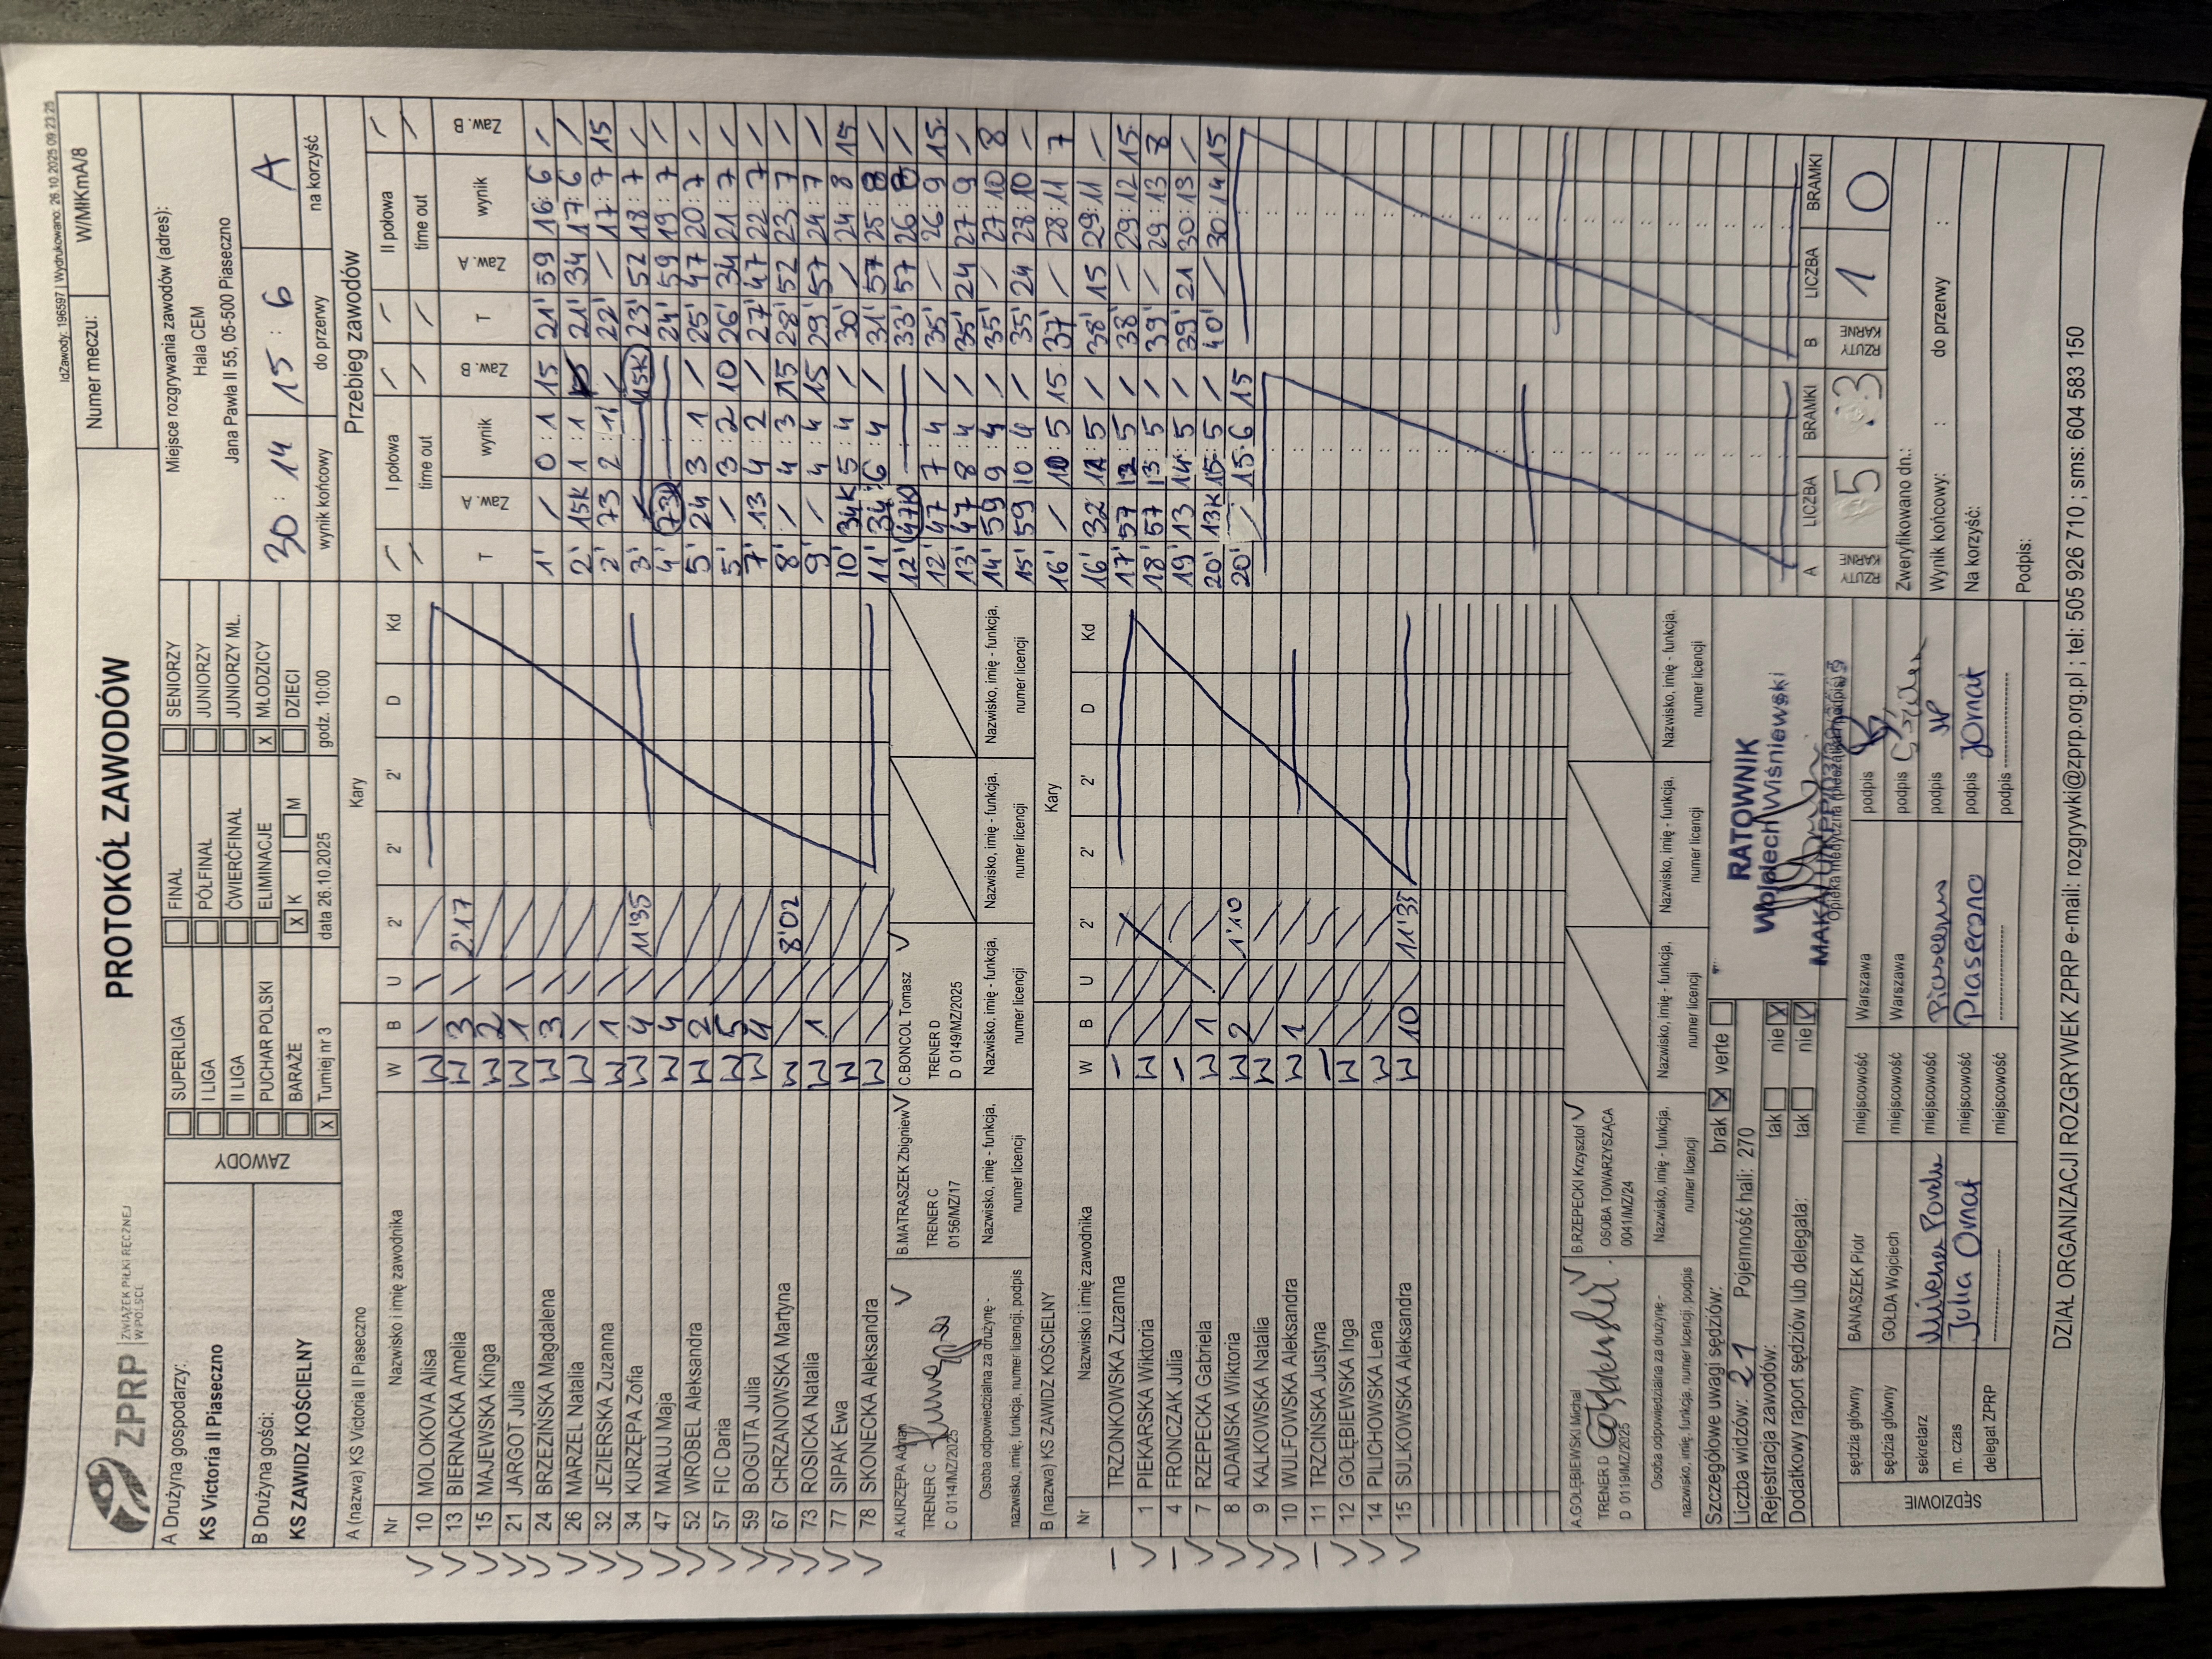 IdZawody: 196597 | Wydrukowano: 26.10.2025 09:23:25
ZPRP ZWIĄZEK PIŁKI RĘCZNEJ W POLSCE
PROTOKÓŁ ZAWODÓW
Numer meczu: W/MłKmA/8
A Drużyna gospodarzy:
KS Victoria II Piaseczno
B Drużyna gości:
KS ZAWIDZ KOŚCIELNY
ZAWODY
SUPERLIGA FINAŁ SENIORZY
I LIGA PÓŁFINAŁ JUNIORZY
II LIGA ĆWIERĆFINAŁ JUNIORZY MŁ.
PUCHAR POLSKI ELIMINACJE X MŁODZICY
BARAŻE X K M DZIECI
X Turniej nr 3 data 26.10.2025 godz. 10:00
Miejsce rozgrywania zawodów (adres):
Hala CEM
Jana Pawła II 55, 05-500 Piaseczno
30 : 14 15 : 6 A
wynik końcowy do przerwy na korzyść
A (nazwa) KS Victoria II Piaseczno Kary
Nr Nazwisko i imię zawodnika W B U 2' 2' 2' D Kd
10 MOLOKOVA Alisa W
13 BIERNACKA Amelia W 3 2'17
15 MAJEWSKA Kinga W 2
21 JARGOT Julia W 1
24 BRZEZIŃSKA Magdalena W 3
26 MARZEL Natalia W
32 JEZIERSKA Zuzanna W 1
34 KURZĘPA Zofia W 4 11'35
47 MALUJ Maja W 4
52 WRÓBEL Aleksandra W 2
57 FIC Daria W 5
59 BOGUTA Julia W 4
67 CHRZANOWSKA Martyna W 8'02
73 ROSICKA Natalia W 1
77 SIPAK Ewa W
78 SKONECKA Aleksandra W
A.KURZĘPA Adrian
TRENER C
C 0114/MZ/2025
B.MATRASZEK Zbigniew
TRENER C
0156/MZ/17
C.BONCOL Tomasz
TRENER D
D 0149/MZ/2025
Osoba odpowiedzialna za drużynę - nazwisko, imię, funkcja, numer licencji, podpis
Nazwisko, imię - funkcja, numer licencji
Nazwisko, imię - funkcja, numer licencji
Nazwisko, imię - funkcja, numer licencji
Nazwisko, imię - funkcja, numer licencji
B (nazwa) KS ZAWIDZ KOŚCIELNY Kary
Nr Nazwisko i imię zawodnika W B U 2' 2' 2' D Kd
TRZONKOWSKA Zuzanna
1 PIEKARSKA Wiktoria W
4 FRONCZAK Julia
7 RZEPECKA Gabriela W 1
8 ADAMSKA Wiktoria W 2 1'10
9 KALKOWSKA Natalia W
10 WULFOWSKA Aleksandra W 1
11 TRZCIŃSKA Justyna
12 GOŁĘBIEWSKA Inga W
14 PILICHOWSKA Lena W
15 SULKOWSKA Aleksandra W 10 11'35
A.GOŁĘBIEWSKI Michał
TRENER D
D 0119/MZ/2025
B.RZEPECKI Krzysztof
OSOBA TOWARZYSZĄCA
0041/MZ/24
Osoba odpowiedzialna za drużynę - nazwisko, imię, funkcja, numer licencji, podpis
Nazwisko, imię - funkcja, numer licencji
Nazwisko, imię - funkcja, numer licencji
Nazwisko, imię - funkcja, numer licencji
Nazwisko, imię - funkcja, numer licencji
Przebieg zawodów
I połowa II połowa
time out time out
T Zaw. A wynik Zaw. B T Zaw. A wynik Zaw. B
1' / 0 : 1 15 21' 59 16 : 6 /
2' 15K 1 : 1 21' 34 17 : 6 /
2' 73 2 : 1 / 22' / 17 : 7 15
3' 15K 23' 52 18 : 7 /
4' 73K 24' 59 19 : 7 /
5' 24 3 : 1 / 25' 47 20 : 7 /
5' / 3 : 2 10 26' 34 21 : 7 /
7' 13 4 : 2 / 27' 47 22 : 7 /
8' / 4 : 3 15 28' 52 23 : 7 /
9' / 4 : 4 15 29' 57 24 : 7 /
10' 34K 5 : 4 / 30' / 24 : 8 15
11' 34 6 : 4 / 31' 57 25 : 8 /
12' 47K 33' 57 26 : 8 /
12' 47 7 : 4 / 35' / 26 : 9 15
13' 47 8 : 4 / 35' 24 27 : 9 /
14' 59 9 : 4 / 35' / 27 : 10 8
15' 59 10 : 4 / 35' 24 28 : 10 /
16' / 10 : 5 15 37' / 28 : 11 7
16' 32 11 : 5 / 38' 15 29 : 11 /
17' 57 12 : 5 / 38' / 29 : 12 15
18' 57 13 : 5 / 39' / 29 : 13 8
19' 13 14 : 5 / 39' 21 30 : 13 /
20' 13K 15 : 5 / 40' / 30 : 14 15
20' / 15 : 6 15
A LICZBA BRAMKI B LICZBA BRAMKI
RZUTY KARNE 5 3 RZUTY KARNE 1 0
Szczegółowe uwagi sędziów: brak X verte
Liczba widzów: 21 Pojemność hali: 270
Rejestracja zawodów: tak nie X
Dodatkowy raport sędziów lub delegata: tak nie
RATOWNIK
Wojciech Wiśniewski
Zweryfikowano dn.:
Wynik końcowy: : do przerwy :
Na korzyść:
Podpis:
SĘDZIOWIE
sędzia główny BANASZEK Piotr miejscowość Warszawa podpis
sędzia główny GOŁDA Wojciech miejscowość Warszawa podpis
sekretarz miejscowość Piaseczno podpis
m. czas Julia Ornat miejscowość Piaseczno podpis JOrnat
delegat ZPRP miejscowość podpis
DZIAŁ ORGANIZACJI ROZGRYWEK ZPRP e-mail: rozgrywki@zprp.org.pl ; tel: 505 926 710 ; sms: 604 583 150